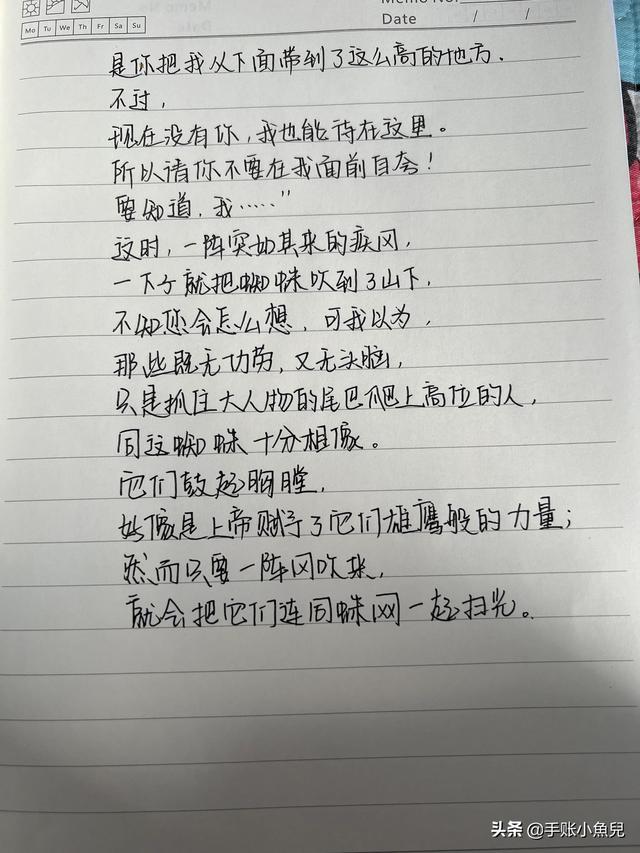 Memo No.
Date / /
Mo Tu We Th Fr Sa Su
是你把我从下面带到了这么高的地方.
不过,
现在没有你,我也能待在这里。
所以请你不要在我面前自夸!
要知道,我……”
这时,一阵突如其来的疾风,
一下子就把蜘蛛吹到了山下.
不知您会怎么想,可我以为,
那些既无功劳,又无头脑,
只是抓住大人物的尾巴爬上高位的人,
同这蜘蛛十分相像。
它们鼓起胸膛,
好像是上帝赋予了它们雄鹰般的力量;
然而只要一阵风吹来,
就会把它们连同蛛网一起扫光。
头条 @手账小魚兒